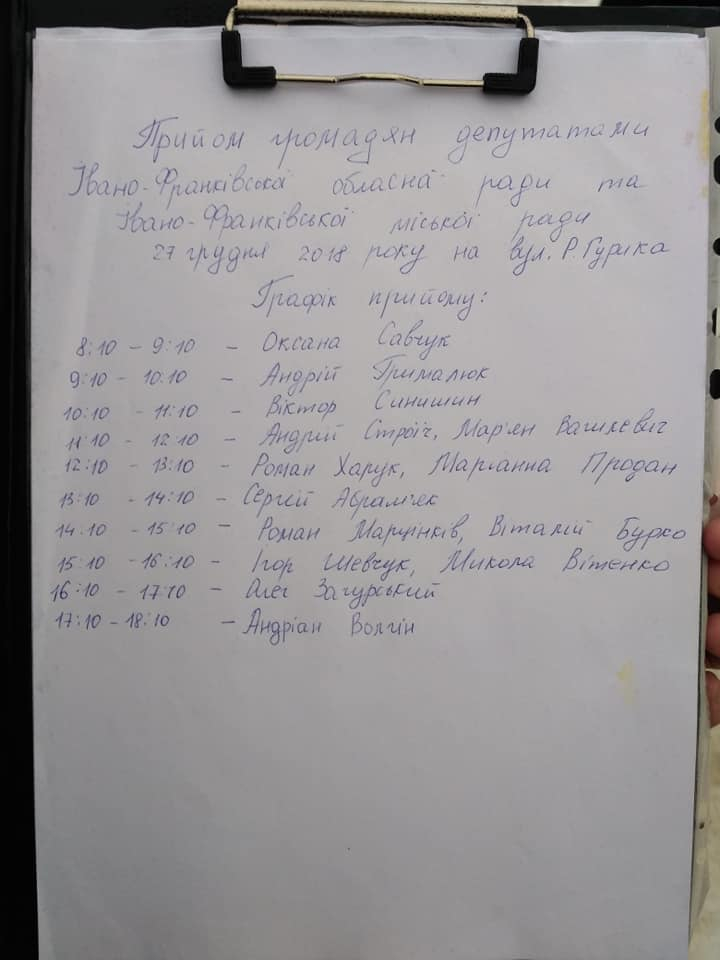 Прийом громадян депутатами
Івано-Франківської обласної ради та
Івано-Франківської міської ради
27 грудня 2018 року на вул. Р. Гурика
Графік прийому:
8:10 - 9:10 - Оксана Савчук
9:10 - 10:10 - Андрій Грималюк
10:10 - 11:10 - Віктор Синишин
11:10 - 12:10 - Андрій Строїч, Мар'ян Вацкевич
12:10 - 13:10 - Роман Харук, Маріанна Продан
13:10 - 14:10 - Сергій
14:10 - 15:10 - Роман Марцінків, Віталій Бурко
15:10 - 16:10 - Ігор Шевчук, Микола Вітенко
16:10 - 17:10 - Олег Загурський
17:10 - 18:10 - Андріан Волгін